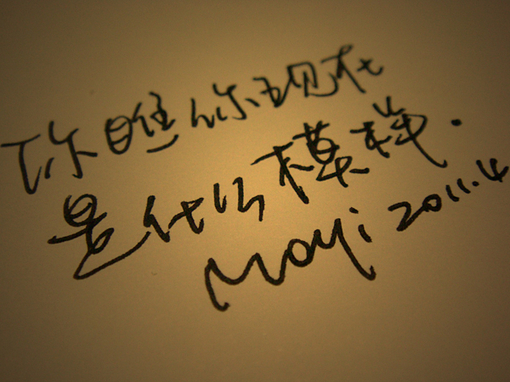 你瞧你现在
是什么模样.
Moyi 2011.4